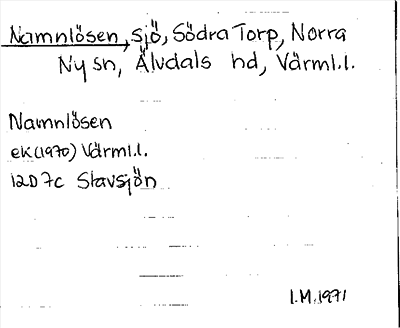 Namnlösen, sjö, Södra Torp, Norra
Ny sn, Älvdals hd, Värml.l.
Namnlösen
ek(1970) Värml.l.
12D 7c Stavsjön
I.M. 1971